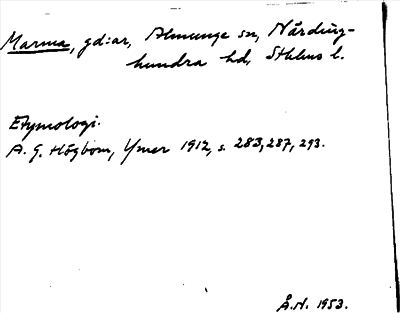 Marma, gd:ar, Almunge sn, Närding-
hundra hd, Sthlms l.
Etymologi.
A. G. Högbom, Ymer 1912, s. 283, 287, 293.
Å.N. 1953.